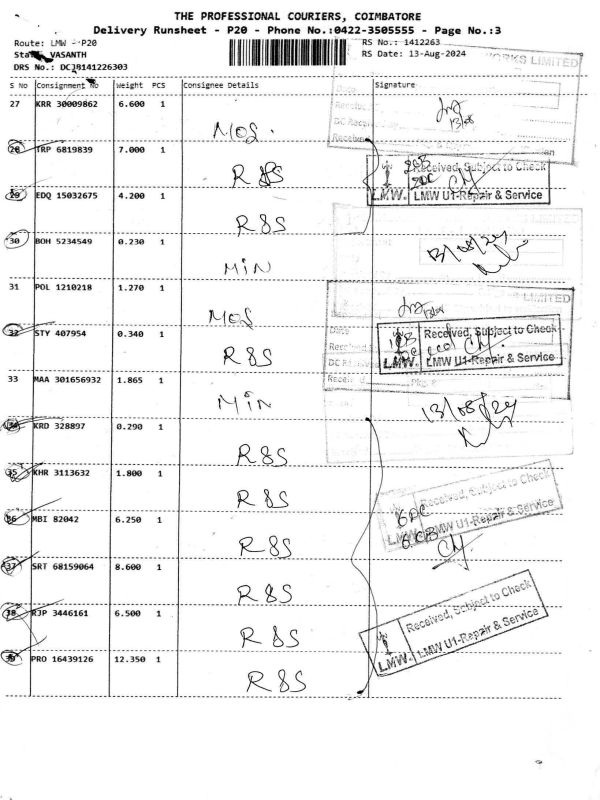 THE PROFESSIONAL COURIERS, COIMBATORE
Delivery Runsheet - P20 - Phone No.:0422-3505555 - Page No.:3
Route: LMW - P20
RS No.: 1412263
VASANTH
RS Date: 13-Aug-2024
DRS No.: DCJB141226303
S No Consignment No Weight PCS Consignee Details Signature
27 KRR 30009862 6.600 1
MOS
13/08
28 TRP 6819839 7.000 1
R&S
Received, Subject to Check
LMW. LMW U1-Repair & Service
29 EDQ 15032675 4.200 1
R&S
30 BOH 5234549 0.230 1
MIN
13/08/24
31 POL 1210218 1.270 1
MOS
32 STY 407954 0.340 1
R&S
Received, Subject to Check
LMW. LMW U1-Repair & Service
33 MAA 301656932 1.865 1
MIN
13/08/24
34 KRD 328897 0.290 1
R&S
35 KHR 3113632 1.800 1
R&S
Received, Subject to Check
LMW U1-Repair & Service
36 MBI 82042 6.250 1
R&S
37 SRT 68159064 8.600 1
R&S
38 RJP 3446161 6.500 1
R&S
Received, Subject to Check
LMW. LMW U1-Repair & Service
39 PRO 16439126 12.350 1
R&S